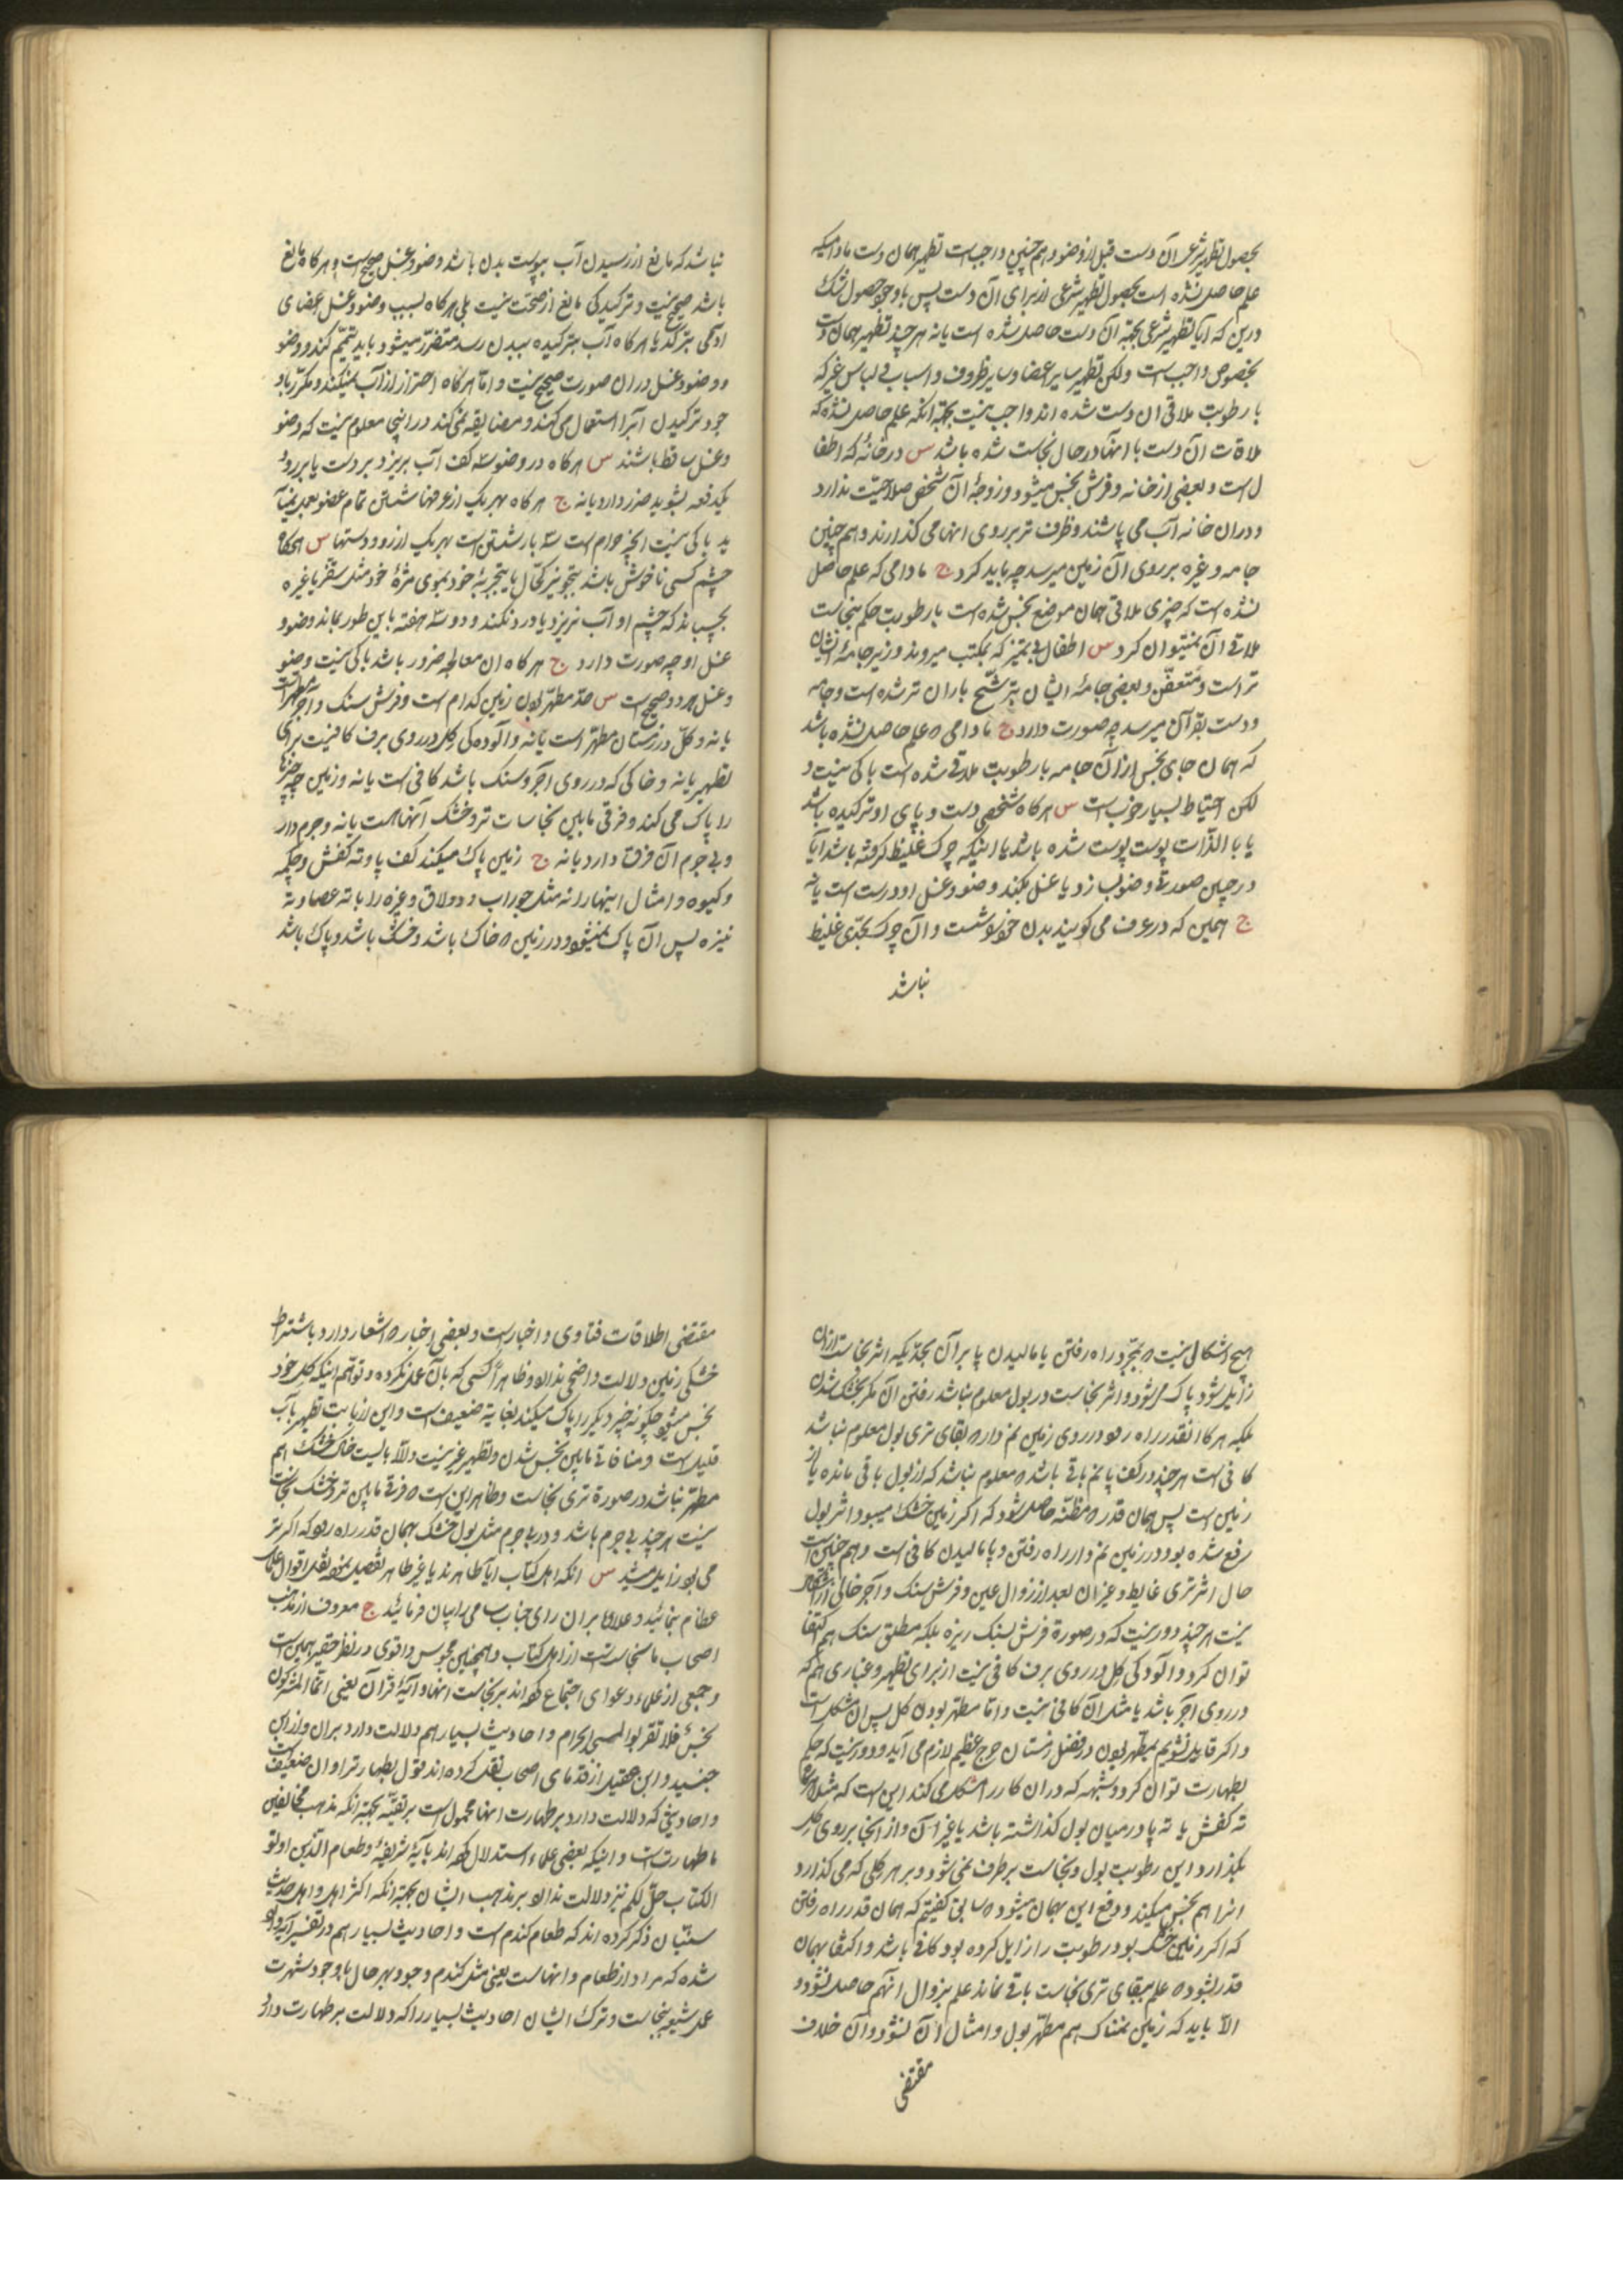 بحصول تطهیر شرعی آن دست قبل از وضو و هم چنین واجب است تطهیر همان دست مادامیکه
علم حاصل نشده است بحصول تطهیر شرعی از برای آن دست پس با وجود حصول شک
درین که آیا تطهیر شرعی بجهة آن دست حاصل شده است یا نه هر چند تطهیر همان دست
بخصوص واجب است ولکن تطهیر سایر اعضا و سایر ظروف و اسباب و لباس غیر که
با رطوبت ملاقی ان دست شده اند واجب نیست بجهة انکه علم حاصل نشده که
ملاقات ان دست با انها در حال نجاست شده باشد س در خانۀ که اطفا
ل است و بعضی از خانه و فرش نجس میشود و زوجۀ ان شخص صلاحیّت ندارد
و دران خانه آب می پاشند و ظرف تر بر روی انها می کذارند و هم چنین
جامه و غیره بر روی آن زمین میرسد چه باید کرد ج مادامی که علم حاصل
نشده است که چیزی ملاقی همان موضع نجس شده است با رطوبت حکم بنجاست
ملاقی آن نمیتوان کرد س اطفال بی تمیز که بمکتب میروند و زیر جامۀ ایشان
تر است و متعفّن و بعضی جامۀ ایشان بترشّح باران تر شده است و جامه
و دست بقرآن میرسد چه صورت دارد ج مادامی که علم حاصل نشده باشد
که همان جای نجس از آن جامه با رطوبت ملاقی شده است باکی نیست و
لکن احتیاط بسیار خوب است س هرکاه شخصی دست و پای او ترکیده باشد
یا بالذّات پوست پوست شده باشد یا اینکه چرک غلیظ کرفته باشد ایا
در چنین صورتی وضو بسازد یا غسل بکند وضو و غسل او درست است یا نه
ج همین که در عرف می کویند بدن خود را شست و ان چرک بحدّی غلیظ
نباشد
نباشد که مانع از رسیدن آب بپوست بدن باشد وضو و غسل صحیح است و هرکاه مانع
باشد صحیح نیست و ترکیدکی مانع از صحّت نیست بلی هرکاه بسبب وضو و غسل اعضای
ادمی بترکد یا هرکاه آب بترکیده ببدن رسد متضرّر میشود باید تیمّم کند و وضو
و وضو و غسل دران صورت صحیح نیست و امّا هرکاه احتراز از آب نمیکند و مکرّر باو
جود ترکیدن آبرا استعمال می کند و مضایقه نمی کند دراینجا معلوم نیست که وضو
و غسل ساقط باشند س هرکاه در وضو سه کف آب بریزد بر دست یا بر روۀ
یکدفعه بشوید ضرر دارد یا نه ج هرکاه بهر یک از غرفها شستن تمام عضو بعمل نیا
ید باکی نیست آنچه حرام است سه بار شستن است بهر یک از رو و دستها س هرکاه
چشم کسی ناخوش باشد بتجویز کحّال یا بتجربۀ خود بموی مژۀ خود مثل سقّز یا غیره
بچسباند که چشم او آب نریزد یا درد نکند و دو سه هفته باین طور بماند وضو و
غسل او چه صورت دارد ج هرکاه ان معالجه ضرور باشد باکی نیست و وضو
و غسل هر دو صحیح است س حدّ مطهّر بودن زمین کدام است و فرش سنک و آجر مطهر است
یا نه و کل در زمستان مطهّر است یا نه و آلوده کی کل در روی برف کافیست برای
تطهیر یا نه و خاکی که در روی آجر و سنک باشد کافی است یا نه و زمین چه چیزها
را پاک می کند و فرقی مابین نجاسات تر و خشک آنها هست یا نه و جرم دار
و بی جرم آن فرق دارد یا نه ج زمین پاک میکند کف پا و ته کفش و چکمه
و کیوه و امثال اینها را نه مثل جوراب و دولاق و غیره را با ته عصا و ته
نیزه پس آن پاک نمیشود و در زمین که خاک باشد و خشک باشد و پاک باشد
هیچ اشکالی نیست که بمجرّد راه رفتن یا مالیدن پا بر آن بحدّیکه اثر نجاست ازان
زایل شود پاک میشود و اثر نجاست در بول معلوم نباشد رفتن ان مکر بخشک شدن
بلکه هرکاه انقدر راه رود در روی زمین نم دار که بقای تری بول معلوم نباشد
کافی است هر چند در کف پا نم باقی باشد که معلوم نباشد که از بول باقی مانده یا از
زمین است پس همان قدر که مظنّه حاصل شود که اکر زمین خشک میبود اثر بول
رفع شده بود در زمین نم دار راه رفتن و پا مالیدن کافی است و هم چنین است
حال اثر تری غایط و غیر ان بعد از زوال عین و فرش سنک و آجر خالی از اشکال
نیست هر چند دور نیست که در صورة فرش بسنک ریزه بلکه مطلق سنک هم اکتفا
توان کرد و آلودکی کل در روی برف کافی نیست از برای تطهیر و غباری هم که
در روی اجر باشد یا مثل آن کافی نیست و امّا مطهّر بودن کل پس ان مشکل است
و اکر قایل نشویم بمطهّر بودن در فصل زمستان حرج عظیم لازم می آید و دور نیست که حکم
بطهارت توان کرد و شبهه که دران کار را مشکل می کند این است که مثلا هرکاه
ته کفش یا ته پا در میان بول کذاشته باشد یا غیر آن و از آنجا بر روی کل
بکذارد این رطوبت بول و نجاست برطرف نمی شود و بر هر کلی که می کذارد
انرا هم نجس میکند و دفع این بهمان میشود که سابق کفتیم که همان قدر راه رفتن
که اکر زمین خشک بود رطوبت را زایل کرده بود کافی باشد و اکتفا بهمان
قدر بشود که علم ببقای تری نجاست باقی نماند علم بزوال انهم حاصل نشود و
الّا باید که زمین نمناک هم مطهّر بول و امثال آن نشود و آن خلاف
مقتضی
مقتضی اطلاقات فتاوی و اخبار است و بعضی اخبار که اشعار دارد باشتراط
خشکی زمین دلالت واضحی ندارد و ظاهراً کسی که بآن عمل نکرده و توهّم اینکه کل خود
نجس میشود چکونه چیز دیکر را پاک میکند بغایة ضعیف است و این از بابت تطهیر بآب
قلیل است و منافاتی مابین نجس شدن و تطهیر غیر نیست و الّا بایست خاک خشک هم
مطهّر نباشد در صورة تری نجاست و ظاهر این است که فرقی مابین تر و خشک نجاست
نیست هر چند بی جرم باشد و در بی جرم مثل بول خشک بهمان قدر راه رود که اکر تر
می بود زایل میشد س انکه اهل کتاب ایا طاهرند یا غیر طاهر تفصیل نموده نقل اقوال علماء
عظام بنمائید و علاوه بران رای جناب سامی را بیان فرمائید ج معروف از مذهب
اصحاب ما نجاست است از اهل کتاب و همچنین مجوس و اقوی در نظر حقیر همین است
و جمعی از علماء دعوای اجتماع کرده اند بر نجاست انها و آیۀ قرآن یعنی انّما المشرکون
نجسٌ فلا تقربوا المسجد الحرام و احادیث بسیار هم دلالت دارد بران و از ابن
جنید و ابن عقیل از قدمای اصحاب نقل کرده اند قول بطهارت را و ان ضعیف است
و احادیثی که دلالت دارد بر طهارت انها محمول است بر تقیّه بجهة انکه مذهب مخالفین
ما طهارت است و اینکه بعضی علماء استدلال کرده اند بآیۀ شریفۀ و طعام الّذین اوتو
الکتاب حلّ لکم نیز دلالت ندارد بر مذهب ایشان بجهة انکه اکثر اهل لغة و اهل حدیث
سنّیان ذکر کرده اند که طعام کندم است و احادیث بسیار هم در تفسیر آیه وارد
شده که مراد از طعام دانهاست یعنی مثل کندم و جو و بهر حال با وجود شهرت
عمل شیعه بنجاست و ترک ایشان احادیث بسیار را که دلالت بر طهارت دارد